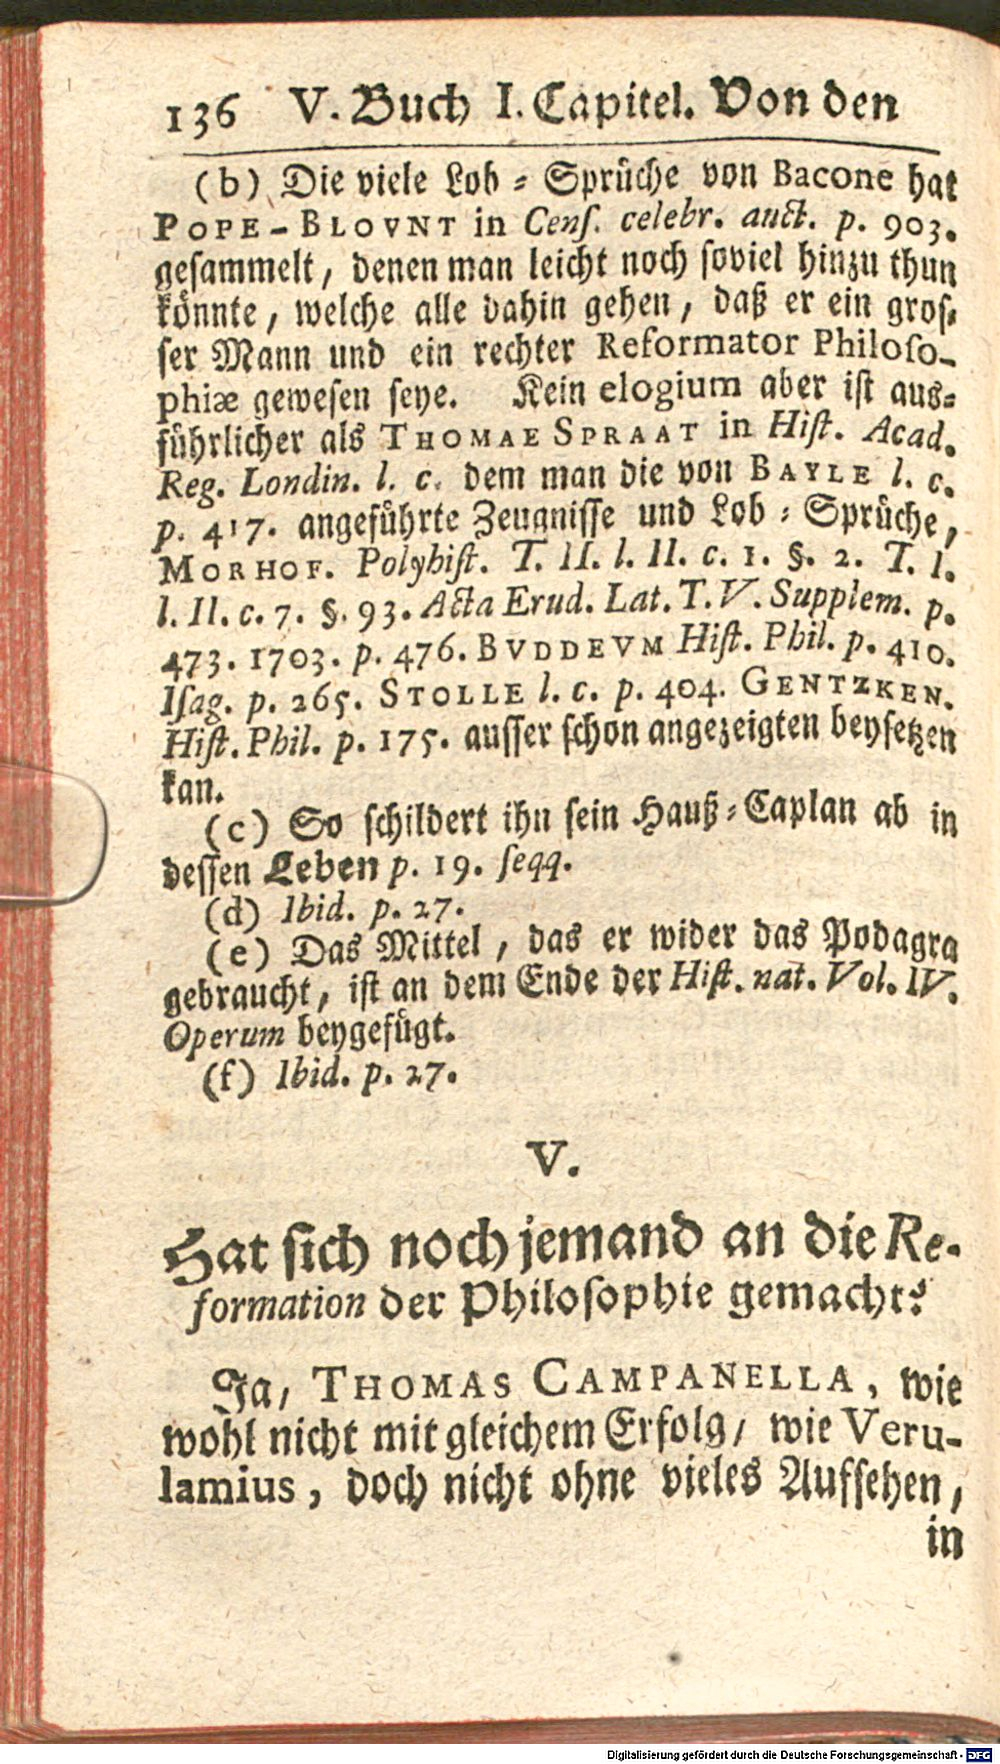 136 V. Buch I. Capitel. Von den
(b) Die viele Lob = Sprüche von Bacone hat
POPE-BLOVNT in Cenſ. celebr. auct. p. 903.
geſammelt, denen man leicht noch ſoviel hinzu thun
könnte, welche alle dahin gehen, daß er ein groſ=
ſer Mann und ein rechter Reformator Philoſo-
phiæ geweſen ſeye. Kein elogium aber iſt aus=
führlicher als THOMAE SPRAAT in Hiſt. Acad.
Reg. Londin. l. c. dem man die von BAYLE l. c.
p. 417. angeführte Zeugniſſe und Lob = Sprüche,
MORHOF. Polyhiſt. T. II. l. II. c. 1. §. 2. T. I.
l. II. c. 7. §. 93. Acta Erud. Lat. T. V. Supplem. p.
473. 1703. p. 476. BVDDEVM Hiſt. Phil. p. 410.
Iſag. p. 265. STOLLE l. c. p. 404. GENTZKEN.
Hiſt. Phil. p. 175. auſſer ſchon angezeigten beyſetzen
kan.
(c) So ſchildert ihn ſein Hauß=Caplan ab in
deſſen Leben p. 19. ſeqq.
(d) Ibid. p. 27.
(e) Das Mittel, das er wider das Podagra
gebraucht, iſt an dem Ende der Hiſt. nat. Vol. IV.
Operum beygefügt.
(f) Ibid. p. 27.
V.
Hat ſich noch jemand an die Re-
formation der Philoſophie gemacht?
Ja, THOMAS CAMPANELLA, wie
wohl nicht mit gleichem Erfolg, wie Veru-
lamius, doch nicht ohne vieles Aufſehen,
in
Digitalisierung gefördert durch die Deutsche Forschungsgemeinschaft - DFG